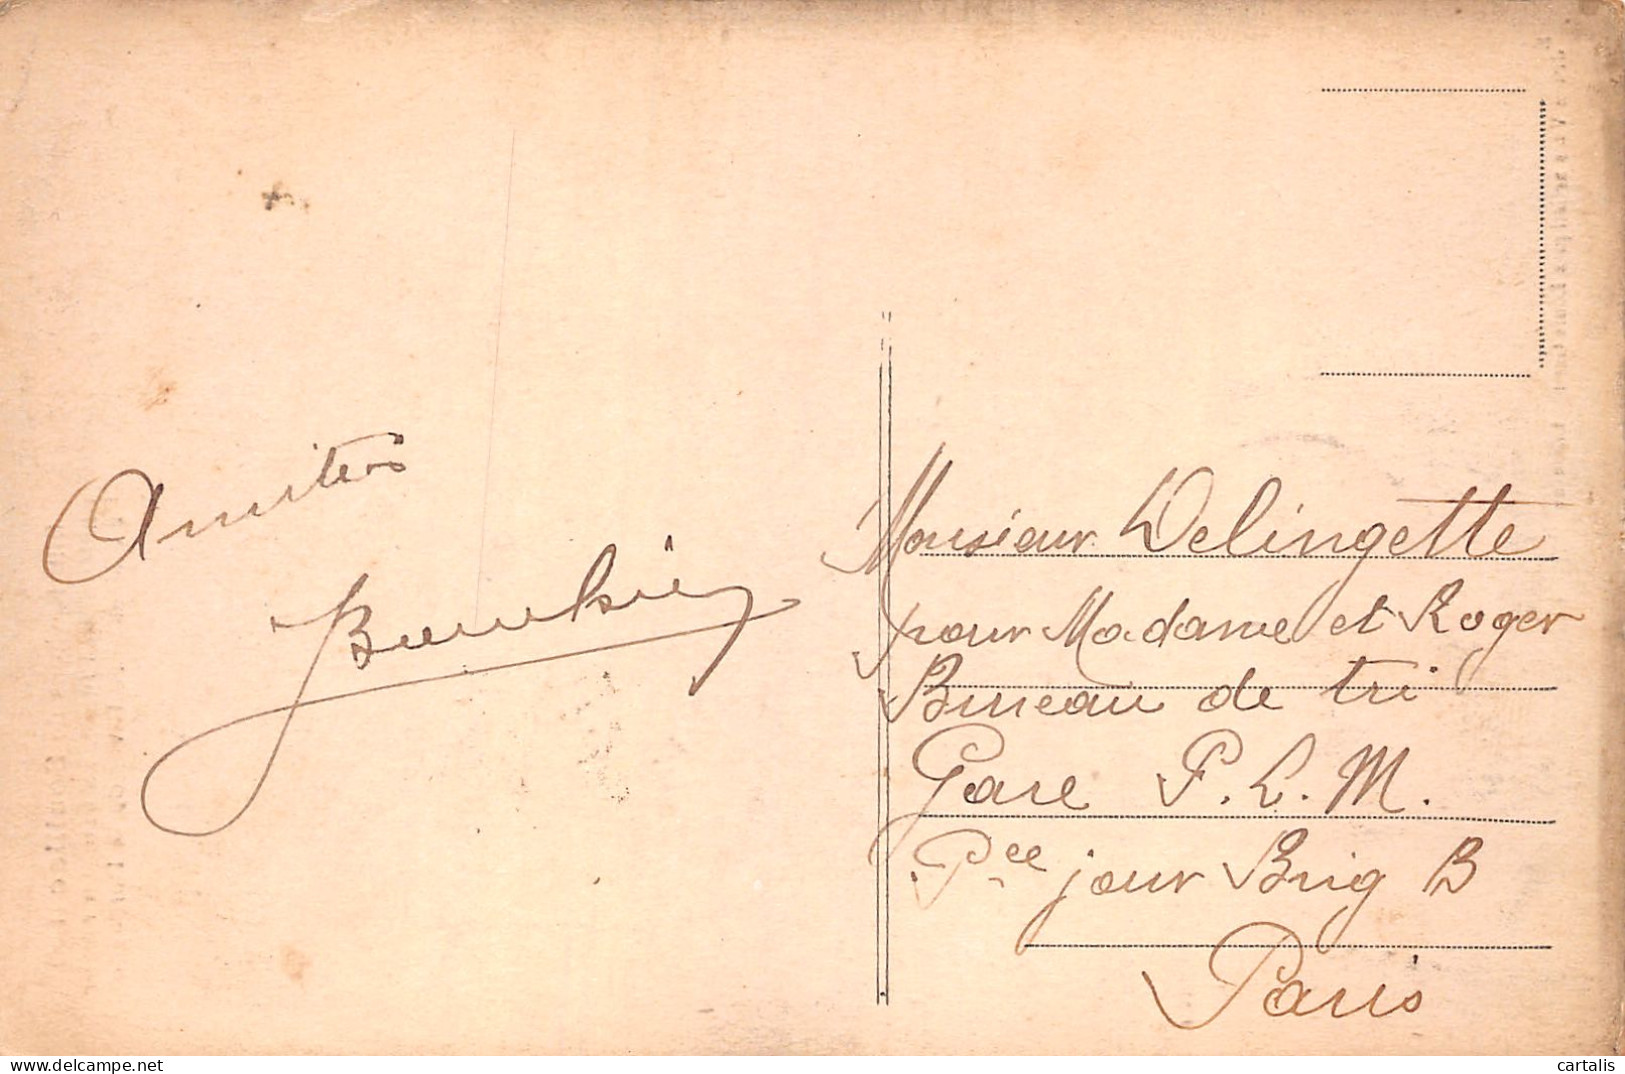 Amitiés
Monsieur Delingette
pour Madame et Roger
Bureau de tri
Gare P.L.M.
Pce jour Brig B
Paris
www.delcampe.net
cartalis